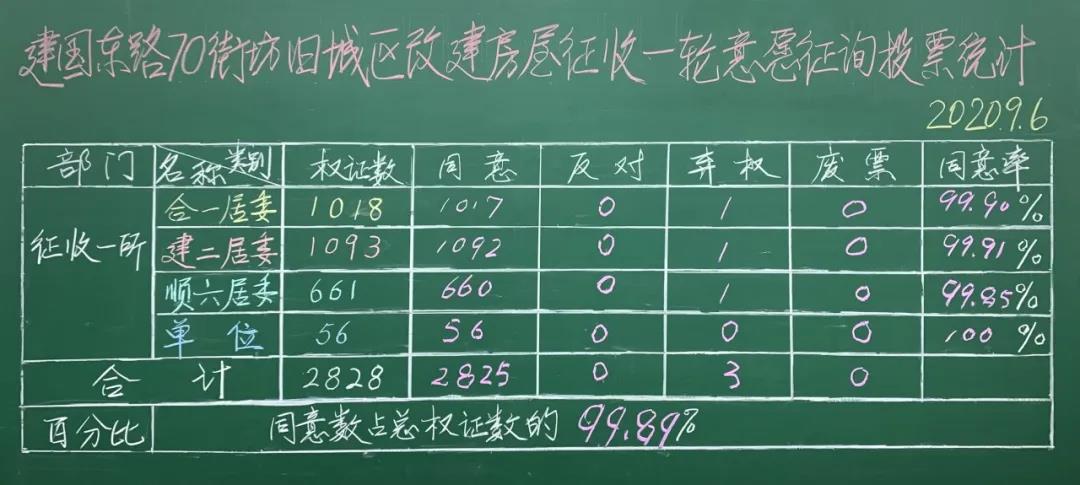 建国东路70街坊旧城区改建房屋征收一轮意愿征询投票统计
2020.9.6
部门 名称 类别 权证数 同意 反对 弃权 废票 同意率
征收一所 合一居委 1018 1017 0 1 0 99.90%
建二居委 1093 1092 0 1 0 99.91%
顺六居委 661 660 0 1 0 99.85%
单位 56 56 0 0 0 100%
合计 2828 2825 0 3 0
百分比 同意数占总权证数的 99.89%